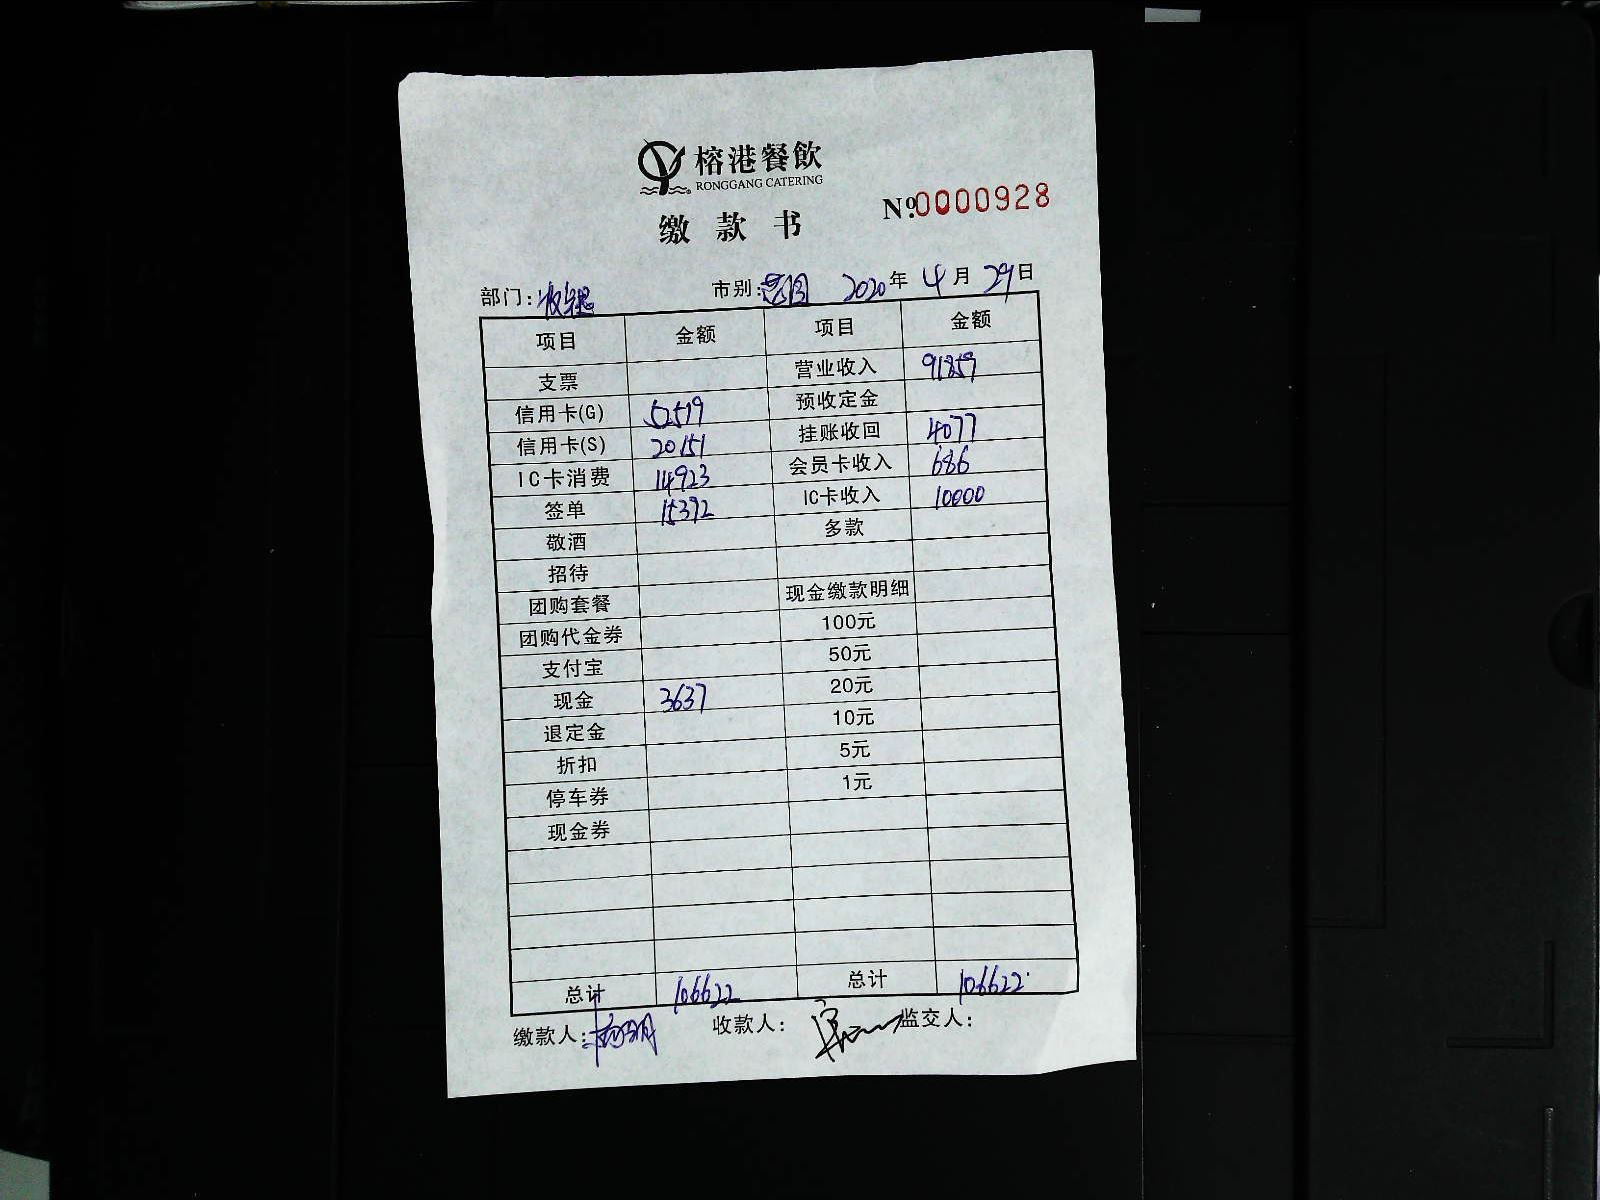 榕港餐飲
RONGGANG CATERING
缴款书 №0000928
部门: 市别: 2020年4月29日
项目 金额 项目 金额
支票 营业收入 91859
信用卡(G) 52519 预收定金
信用卡(S) 20151 挂账收回 4077
IC卡消费 14923 会员卡收入 686
签单 15392 IC卡收入 10000
敬酒 多款
招待
团购套餐 现金缴款明细
团购代金券 100元
支付宝 50元
现金 3637 20元
退定金 10元
折扣 5元
停车券 1元
现金券
总计 106622 总计 106622
缴款人: 收款人: 监交人: